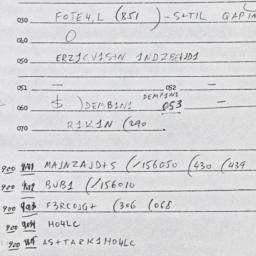 030 FOTE4,L (851 ) - S+TIL GAPIN
040 O
050 ERZ1CV1S+N 1NDZBHJD1
051 — 052 —
DEMP1N1
060 $ )DEMB1N1 053 —
070 R1K1N (290
900 MAJNZAJD+S (/156050 (430 (439
900 BUB1 (/156010
900 F3RCOJG+ (306 (068
900 HO4LC
900 AS+TARK1HO4LC